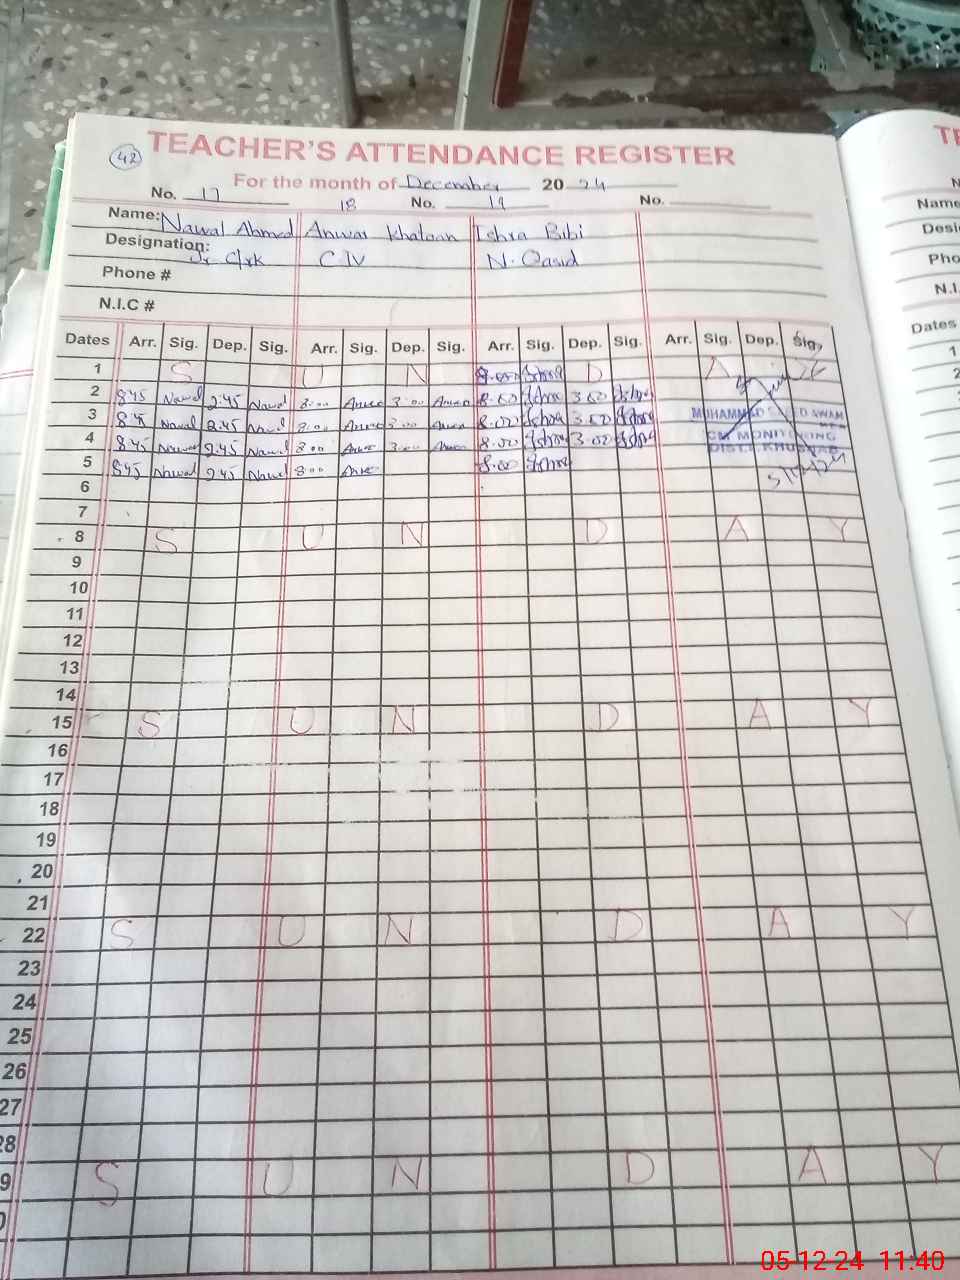 42
TEACHER'S ATTENDANCE REGISTER
For the month of December 2024
No. 17 18 No. 19 No.
Name: Nawal Ahmed Anwar Khatoon Ishra Bibi
Designation: Jr Clrk C-IV N. Qasid
Phone #
N.I.C #
Dates Arr. Sig. Dep. Sig. Arr. Sig. Dep. Sig. Arr. Sig. Dep. Sig. Arr. Sig. Dep. Sig.
1 S U N 8.00 Ishra D A
2 8:45 Nawal 2:45 Nawal 8:00 Anwar 3:00 Anwar 8.00 Ishra 3.00 Ishra
3 8:45 Nawal 2:45 Nawal 8:00 Anwar 3:00 Anwar 8.00 Ishra 3.00 Ishra
4 8:45 Nawal 2:45 Nawal 8:00 Anwar 3:00 Anwar 8.00 Ishra 3.00 Ishra
5 8:45 Nawal 2:45 Nawal 8:00 Anwar 8.00 Ishra
MUHAMMAD
MONITORING
DISTT. KHUSHAB
5/12/24
6
7
8 S U N D A Y
9
10
11
12
13
14
15 S U N D A Y
16
17
18
19
20
21
22 S U N D A Y
23
24
25
26
27
28
9 S U N D A Y
0
TE
N
Name
Desi
Pho
N.I.
Dates
1
2
05-12-24 11:40